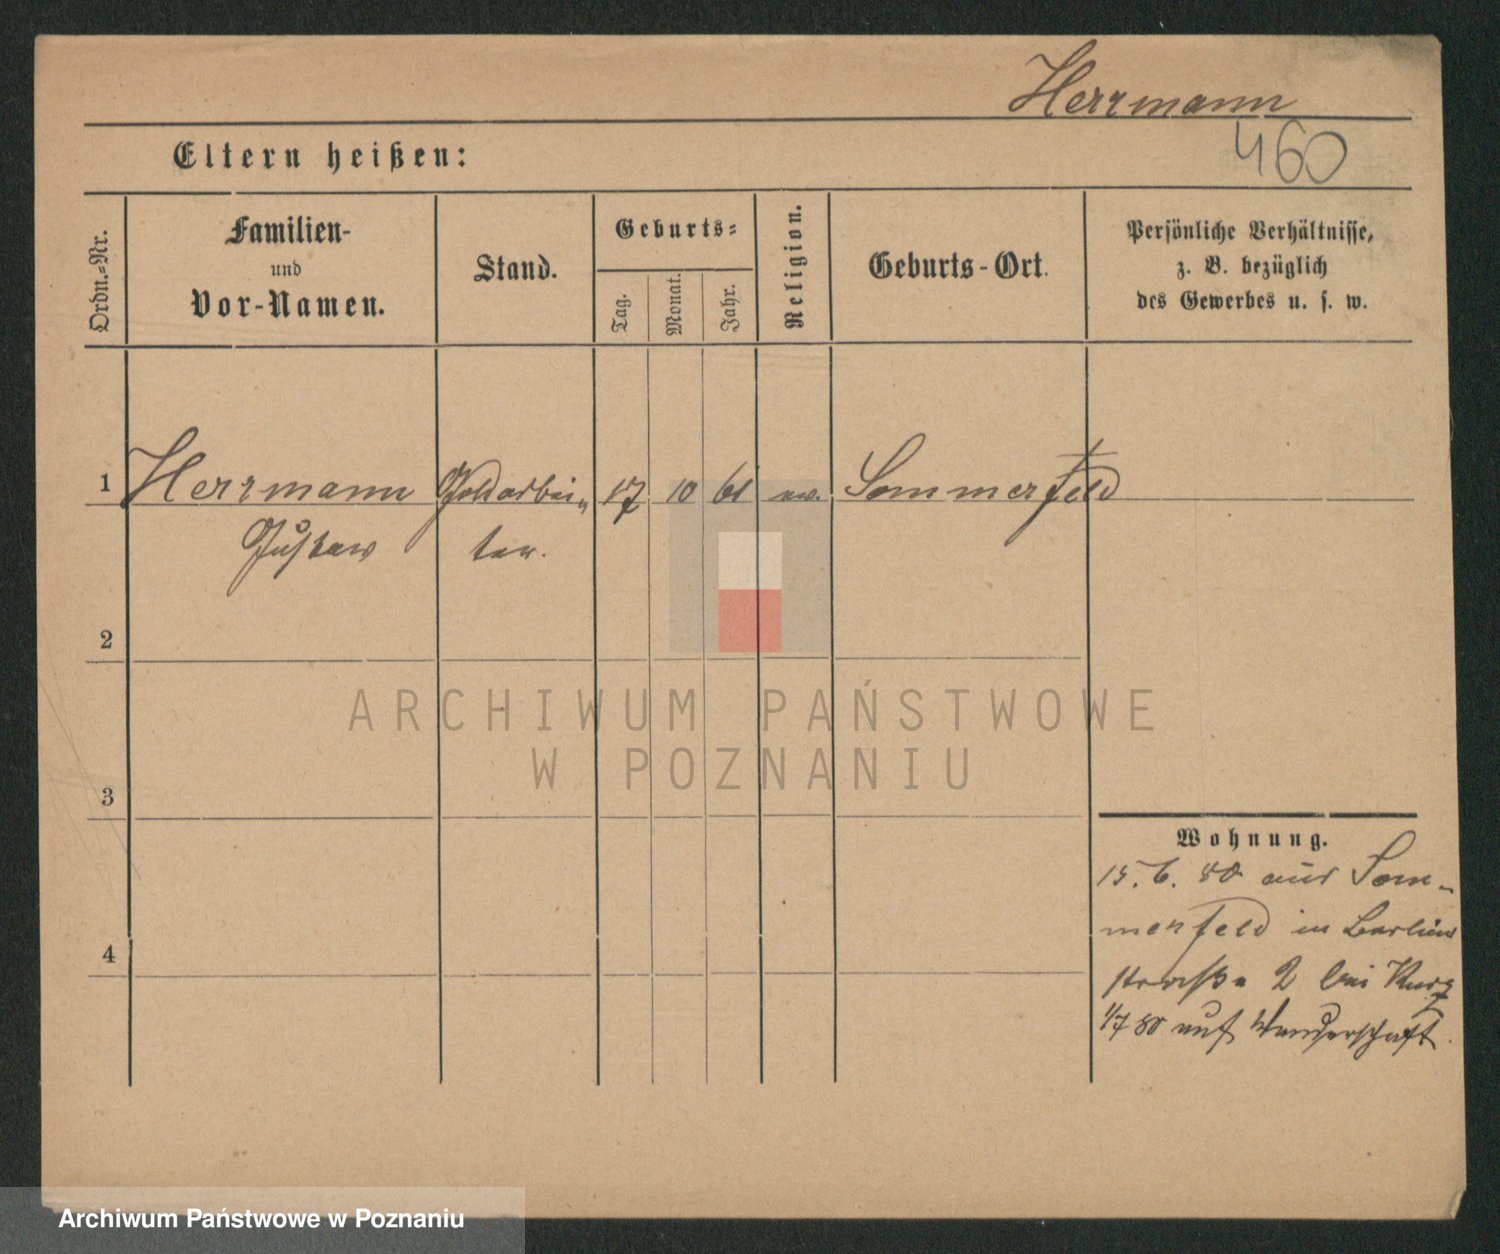 Herrmann
460
Eltern heißen:
Ordn.-Nr.
Familien-
und
Vor-Namen.
Stand.
Geburts-
Tag.
Monat.
Jahr.
Religion.
Geburts-Ort.
Persönliche Verhältnisse,
z. B. bezüglich
des Gewerbes u. s. w.
1 Herrmann Goldarbei- 17 10 61 ev. Sommerfeld
Gustav ter.
2
3
4
Wohnung.
15. 6. 80 aus Som-
merfeld in Berliner
straße 2 bei Kurz
1/7 80 auf Wanderschaft.
ARCHIWUM PAŃSTWOWE
W POZNANIU
Archiwum Państwowe w Poznaniu